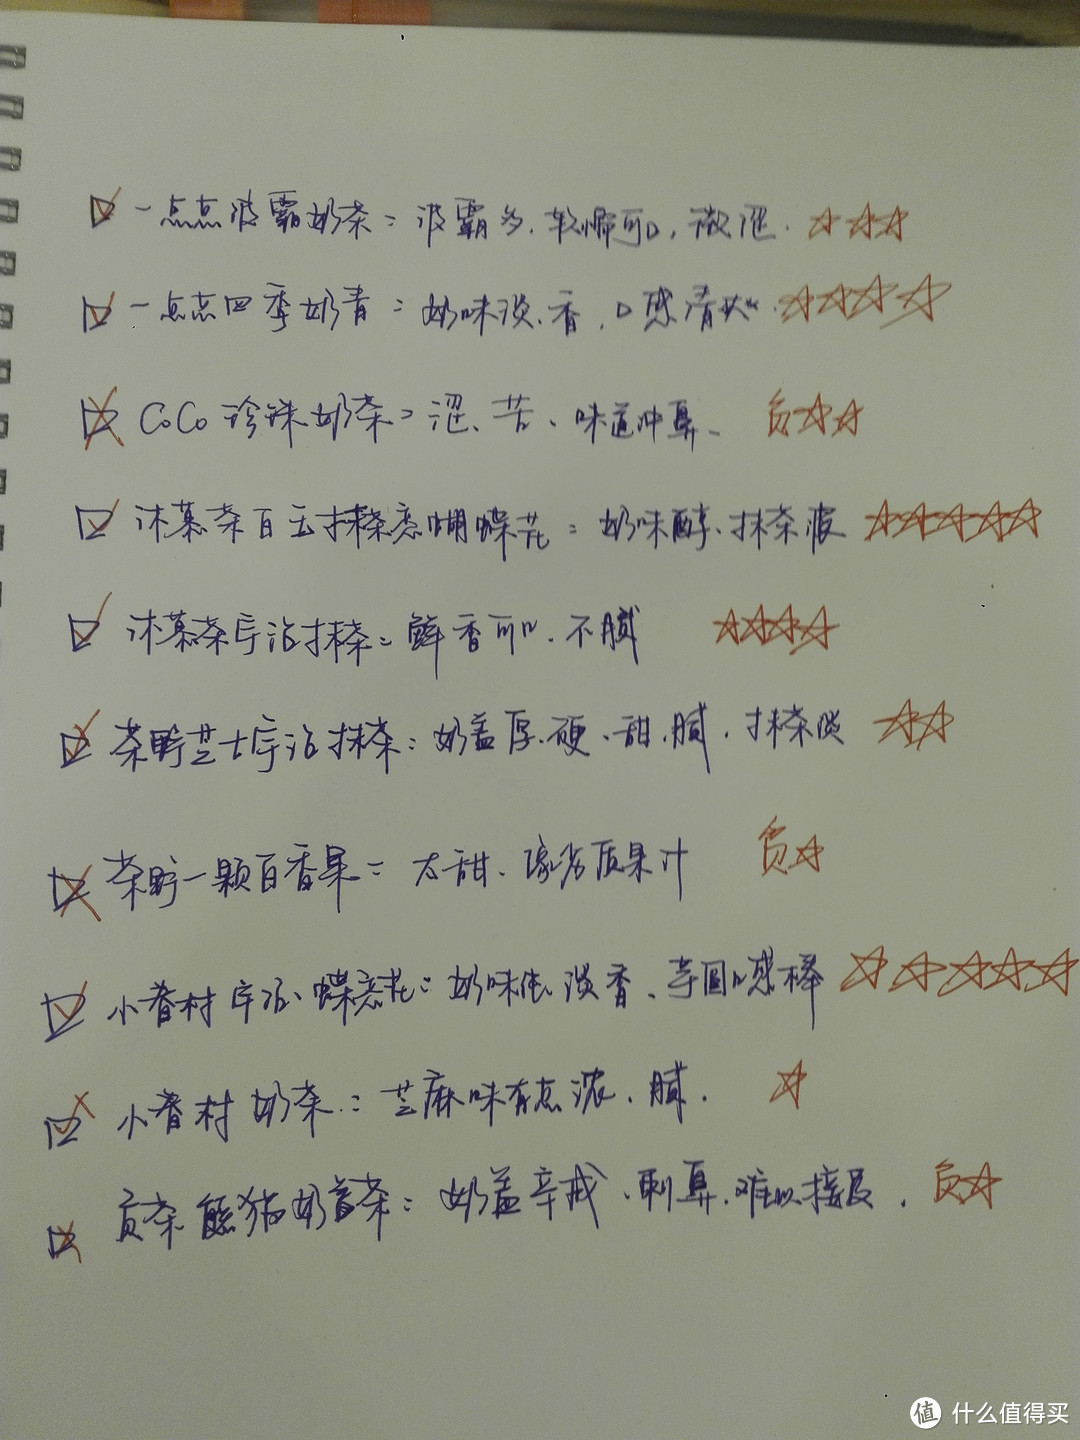 一点点波霸奶茶：波霸多、软糯可口，微涩. ☆☆☆
一点点四季奶青：奶味淡、香，口感清爽. ☆☆☆☆
CoCo 珍珠奶茶：涩、苦、味道冲鼻、 负☆☆
沐慕茶白玉抹茶恋蝴蝶花：奶味醇、抹茶浓 ☆☆☆☆☆
沐慕茶宇治抹茶：鲜香可口、不腻 ☆☆☆☆
茶野芝士宇治抹茶：奶盖厚、硬、甜、腻，抹茶淡 ☆☆
茶野一颗百香果：太甜、像劣质果汁 负☆
小眷村宇治、蝶恋花：奶味、淡香、口感棒 ☆☆☆☆☆
小眷村奶茶：芝麻味有点浓、腻. ☆
贡茶熊猫奶盖茶：奶盖辛咸、刺鼻、难以接受. 负☆
值 什么值得买